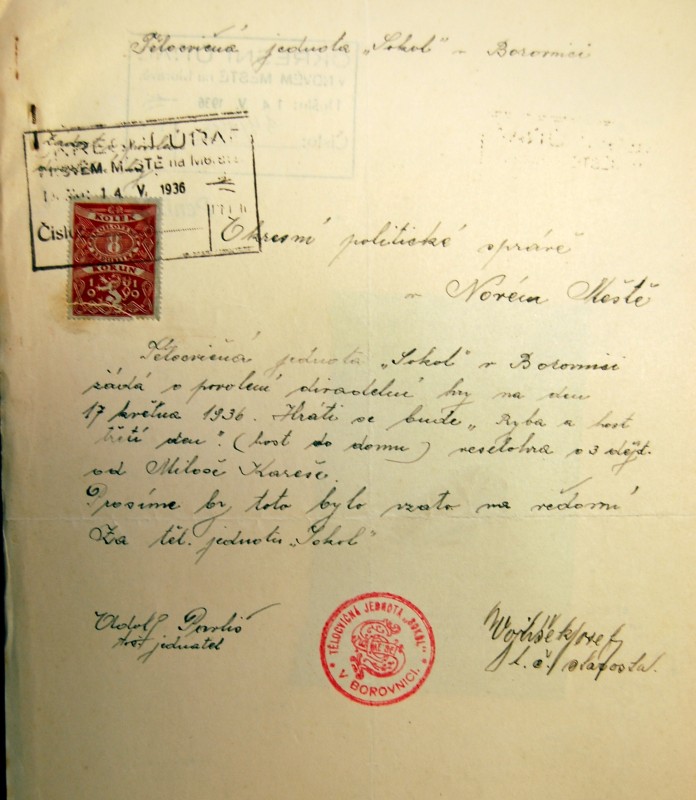 Tělocvičná jednota „Sokol" v Borovnici
OKRESNÍ ÚŘAD
V NOVÉM MĚSTĚ na Moravě
14. V. 1936
Číslo
KOLEK
8
KORUN
1919
Okresní politické správě
v Novém Městě
Tělocvičná jednota „Sokol" v Borovnici
žádá o povolení divadelní hry na den
17 května 1936. Hráti se bude „Ryba a host
třetí den". (host do domu) veselohra o 3 dějst.
od Miloše Kareše.
Prosíme by toto bylo vzato na vědomí
Za těl. jednotu „Sokol"
Adolf Pavliš
jednatel
TĚLOCVIČNÁ JEDNOTA „SOKOL"
V BOROVNICI.
Josef
t. č. starosta.